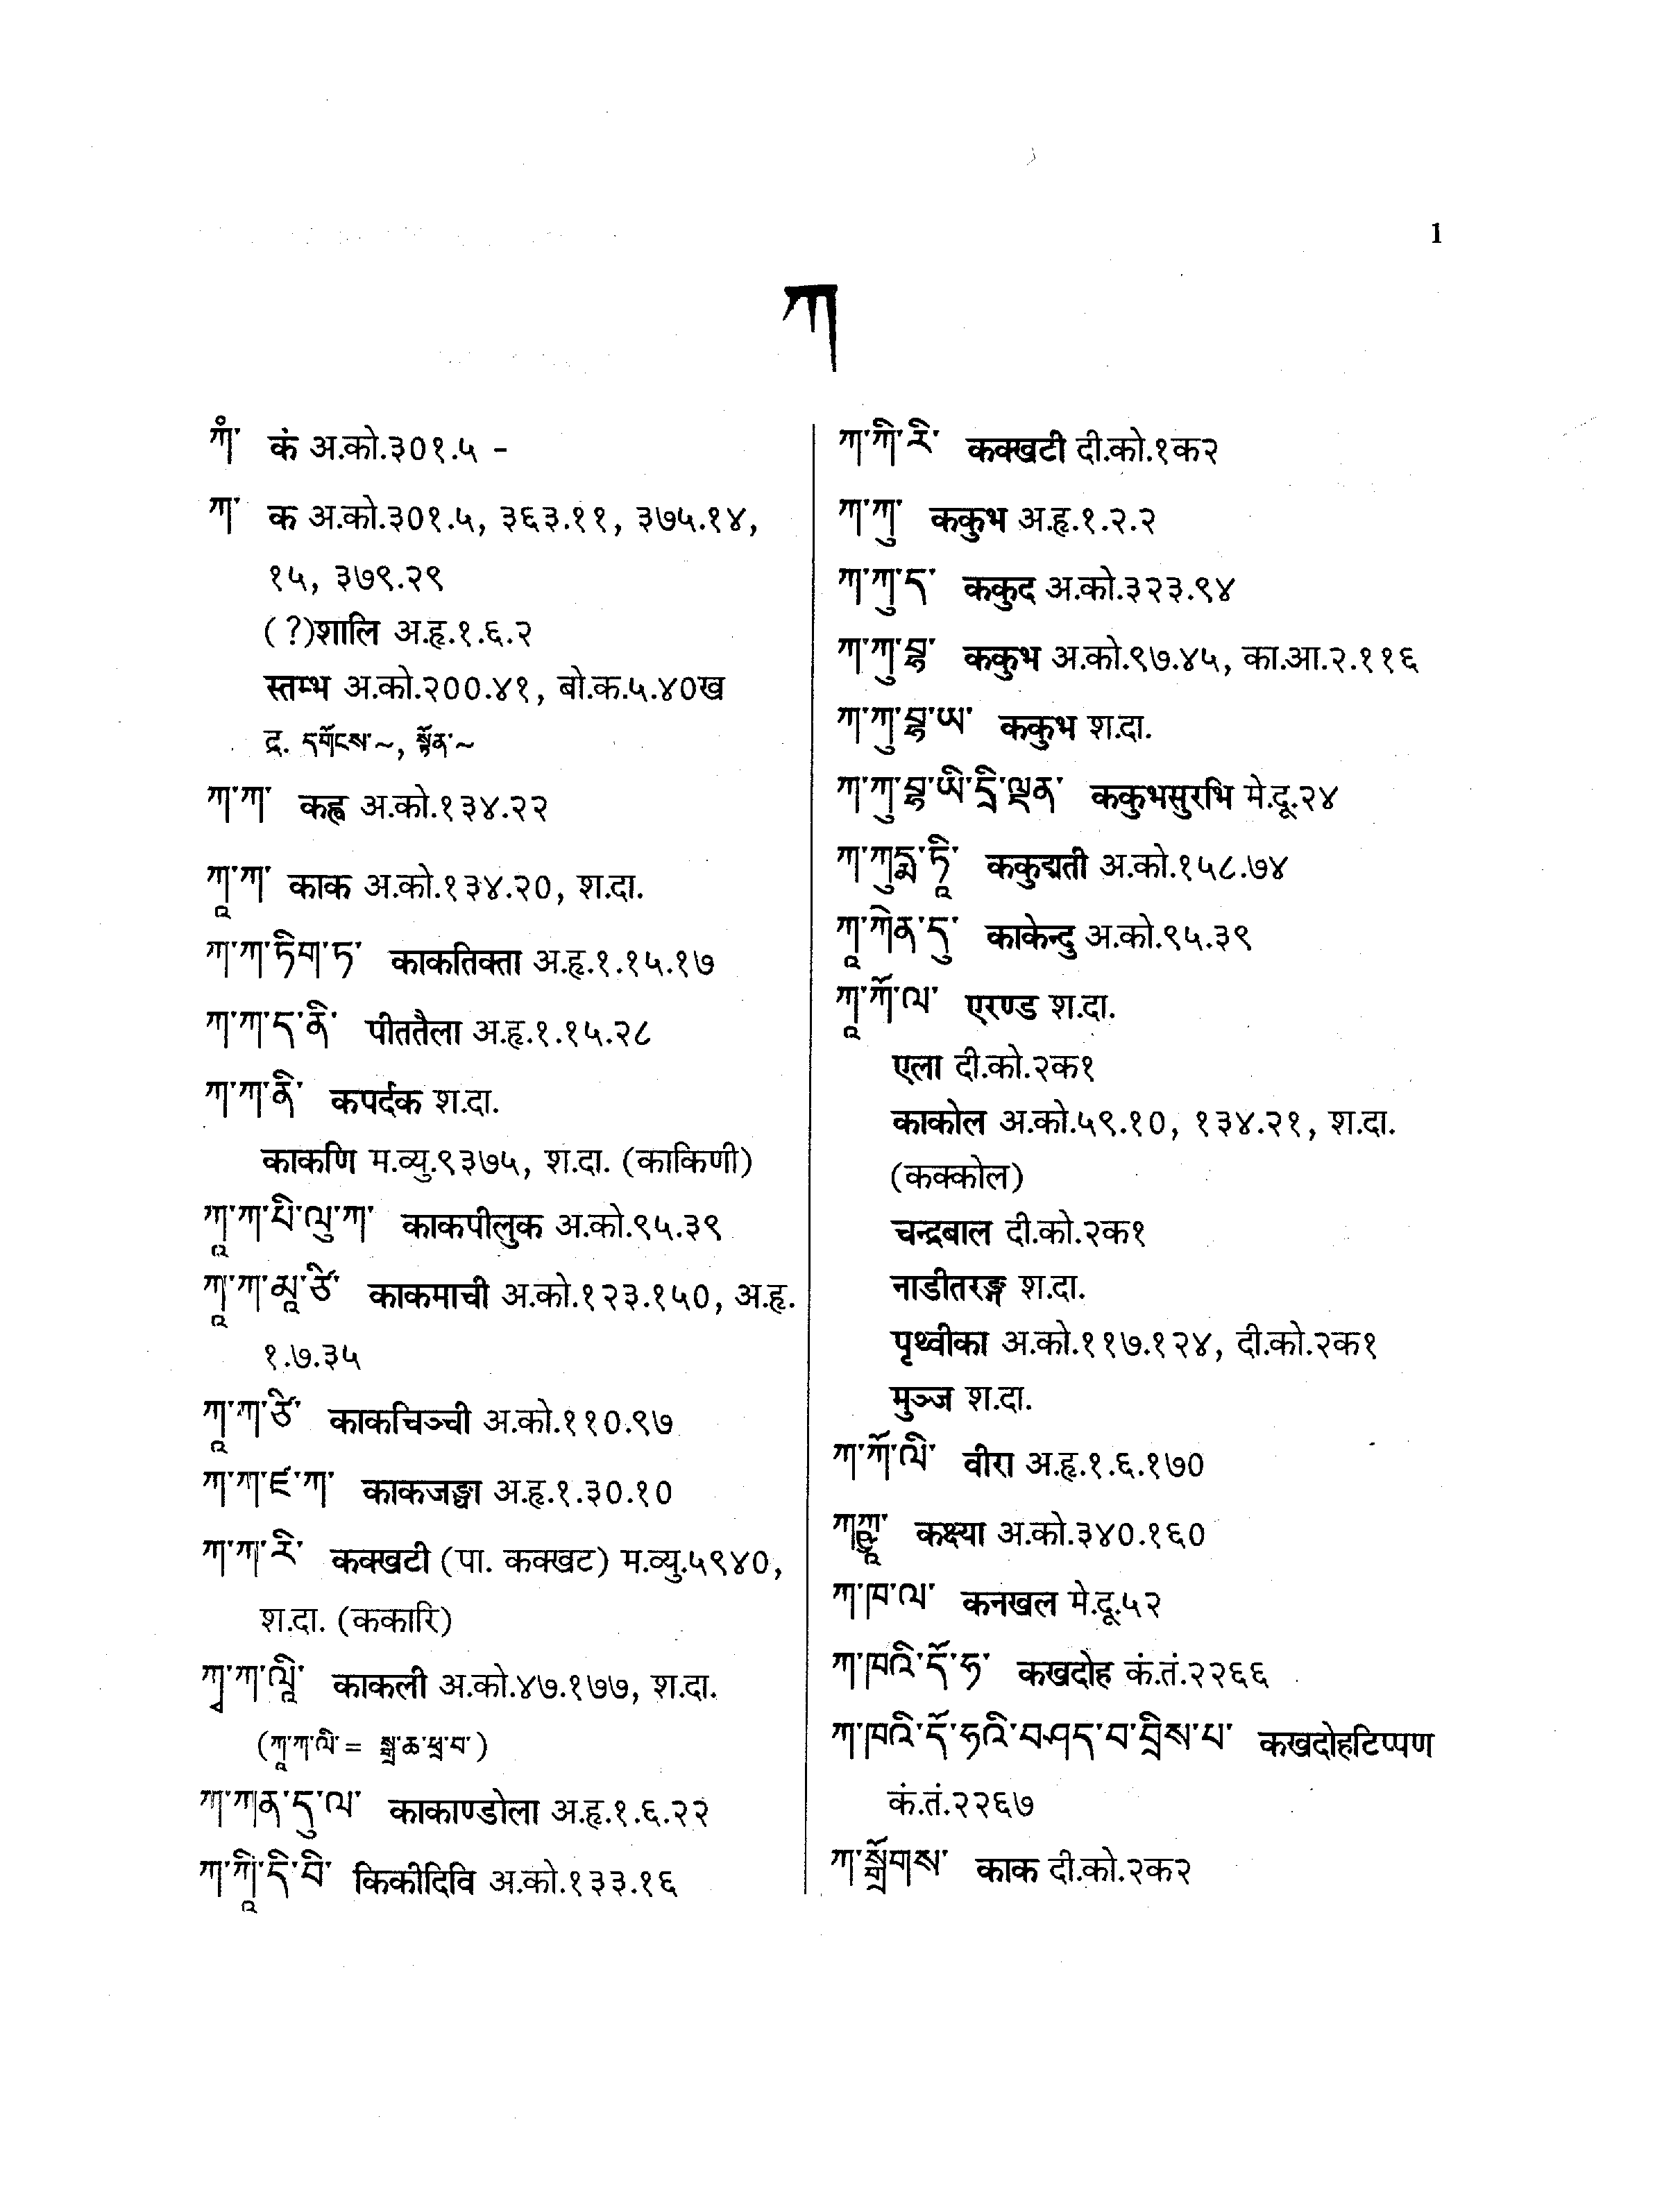 1
ཀ
ཀཾ་ कं अ.को.३०१.५ -
ཀ་ क अ.को.३०१.५, ३६३.११, ३७५.१४,
१५, ३७९.२९
(?)शालि अ.हृ.१.६.२
स्तम्भ अ.को.२००.४१, बो.क.५.४०ख
द्र. དགོངས་~, སྟོན་~
ཀ་ཀ་ कह्व अ.को.१३४.२२
ཀཱ་ཀ་ काक अ.को.१३४.२०, श.दा.
ཀ་ཀ་ཏིག་ཏ་ काकतिक्ता अ.हृ.१.१५.१७
ཀ་ཀ་ད་ནི་ पीततैला अ.हृ.१.१५.२८
ཀ་ཀ་ནི་ कपर्दक श.दा.
काकणि म.व्यु.९३७५, श.दा. (काकिणी)
ཀཱ་ཀ་པི་ལུ་ཀ་ काकपीलुक अ.को.९५.३९
ཀཱ་ཀ་མཱ་ཙི་ काकमाची अ.को.१२३.१५०, अ.हृ.
१.७.३५
ཀཱ་ཀ་ཙི་ काकचिञ्ची अ.को.११०.९७
ཀ་ཀ་ཛ་ཀ་ काकजङ्घा अ.हृ.१.३०.१०
ཀ་ཀ་རི་ कक्खटी (पा. कक्खट) म.व्यु.५९४०,
श.दा. (ककारि)
ཀྲ་ཀ་ལཱི་ काकली अ.को.४७.१७७, श.दा.
(ཀཱ་ཀ་ལི་= སྒྲ་ཆ་ཕྲ་བ་)
ཀ་ཀན་དུ་ལ་ काकाण्डोला अ.हृ.१.६.२२
ཀ་ཀཱི་དི་བི་ किकीदिवि अ.को.१३३.१६
ཀ་ཀི་རི་ कक्खटी दी.को.१क२
ཀ་ཀུ་ ककुभ अ.हृ.१.२.२
ཀ་ཀུ་ད་ ककुद अ.को.३२३.९४
ཀ་ཀུ་བྷ་ ककुभ अ.को.९७.४५, का.आ.२.११६
ཀ་ཀུ་བྷ་ཡ་ ककुभ श.दा.
ཀ་ཀུ་བྷ་ཡི་དྲི་ལྡན་ ककुभसुरभि मे.दू.२४
ཀ་ཀུདྨ་ཏཱི་ ककुद्मती अ.को.१५८.७४
ཀཱ་ཀེན་དུ་ काकेन्दु अ.को.९५.३९
ཀཱ་ཀོ་ལ་ एरण्ड श.दा.
एला दी.को.२क१
काकोल अ.को.५९.१०, १३४.२१, श.दा.
(कक्कोल)
चन्द्रबाल दी.को.२क१
नाडीतरङ्ग श.दा.
पृथ्वीका अ.को.११७.१२४, दी.को.२क१
मुञ्ज श.दा.
ཀ་ཀོ་ལི་ वीरा अ.हृ.१.६.१७०
कक्ष्या अ.को.३४०.१६०
ཀ་ཁ་ལ་ कनखल मे.दू.५२
ཀ་ཁའི་དོ་ཧ་ कखदोह कं.तं.२२६६
ཀ་ཁའི་དོ་ཧའི་བཤད་པ་བྲིས་པ་ कखदोहटिप्पण
कं.तं.२२६७
ཀ་སྒྲོགས་ काक दी.को.२क२